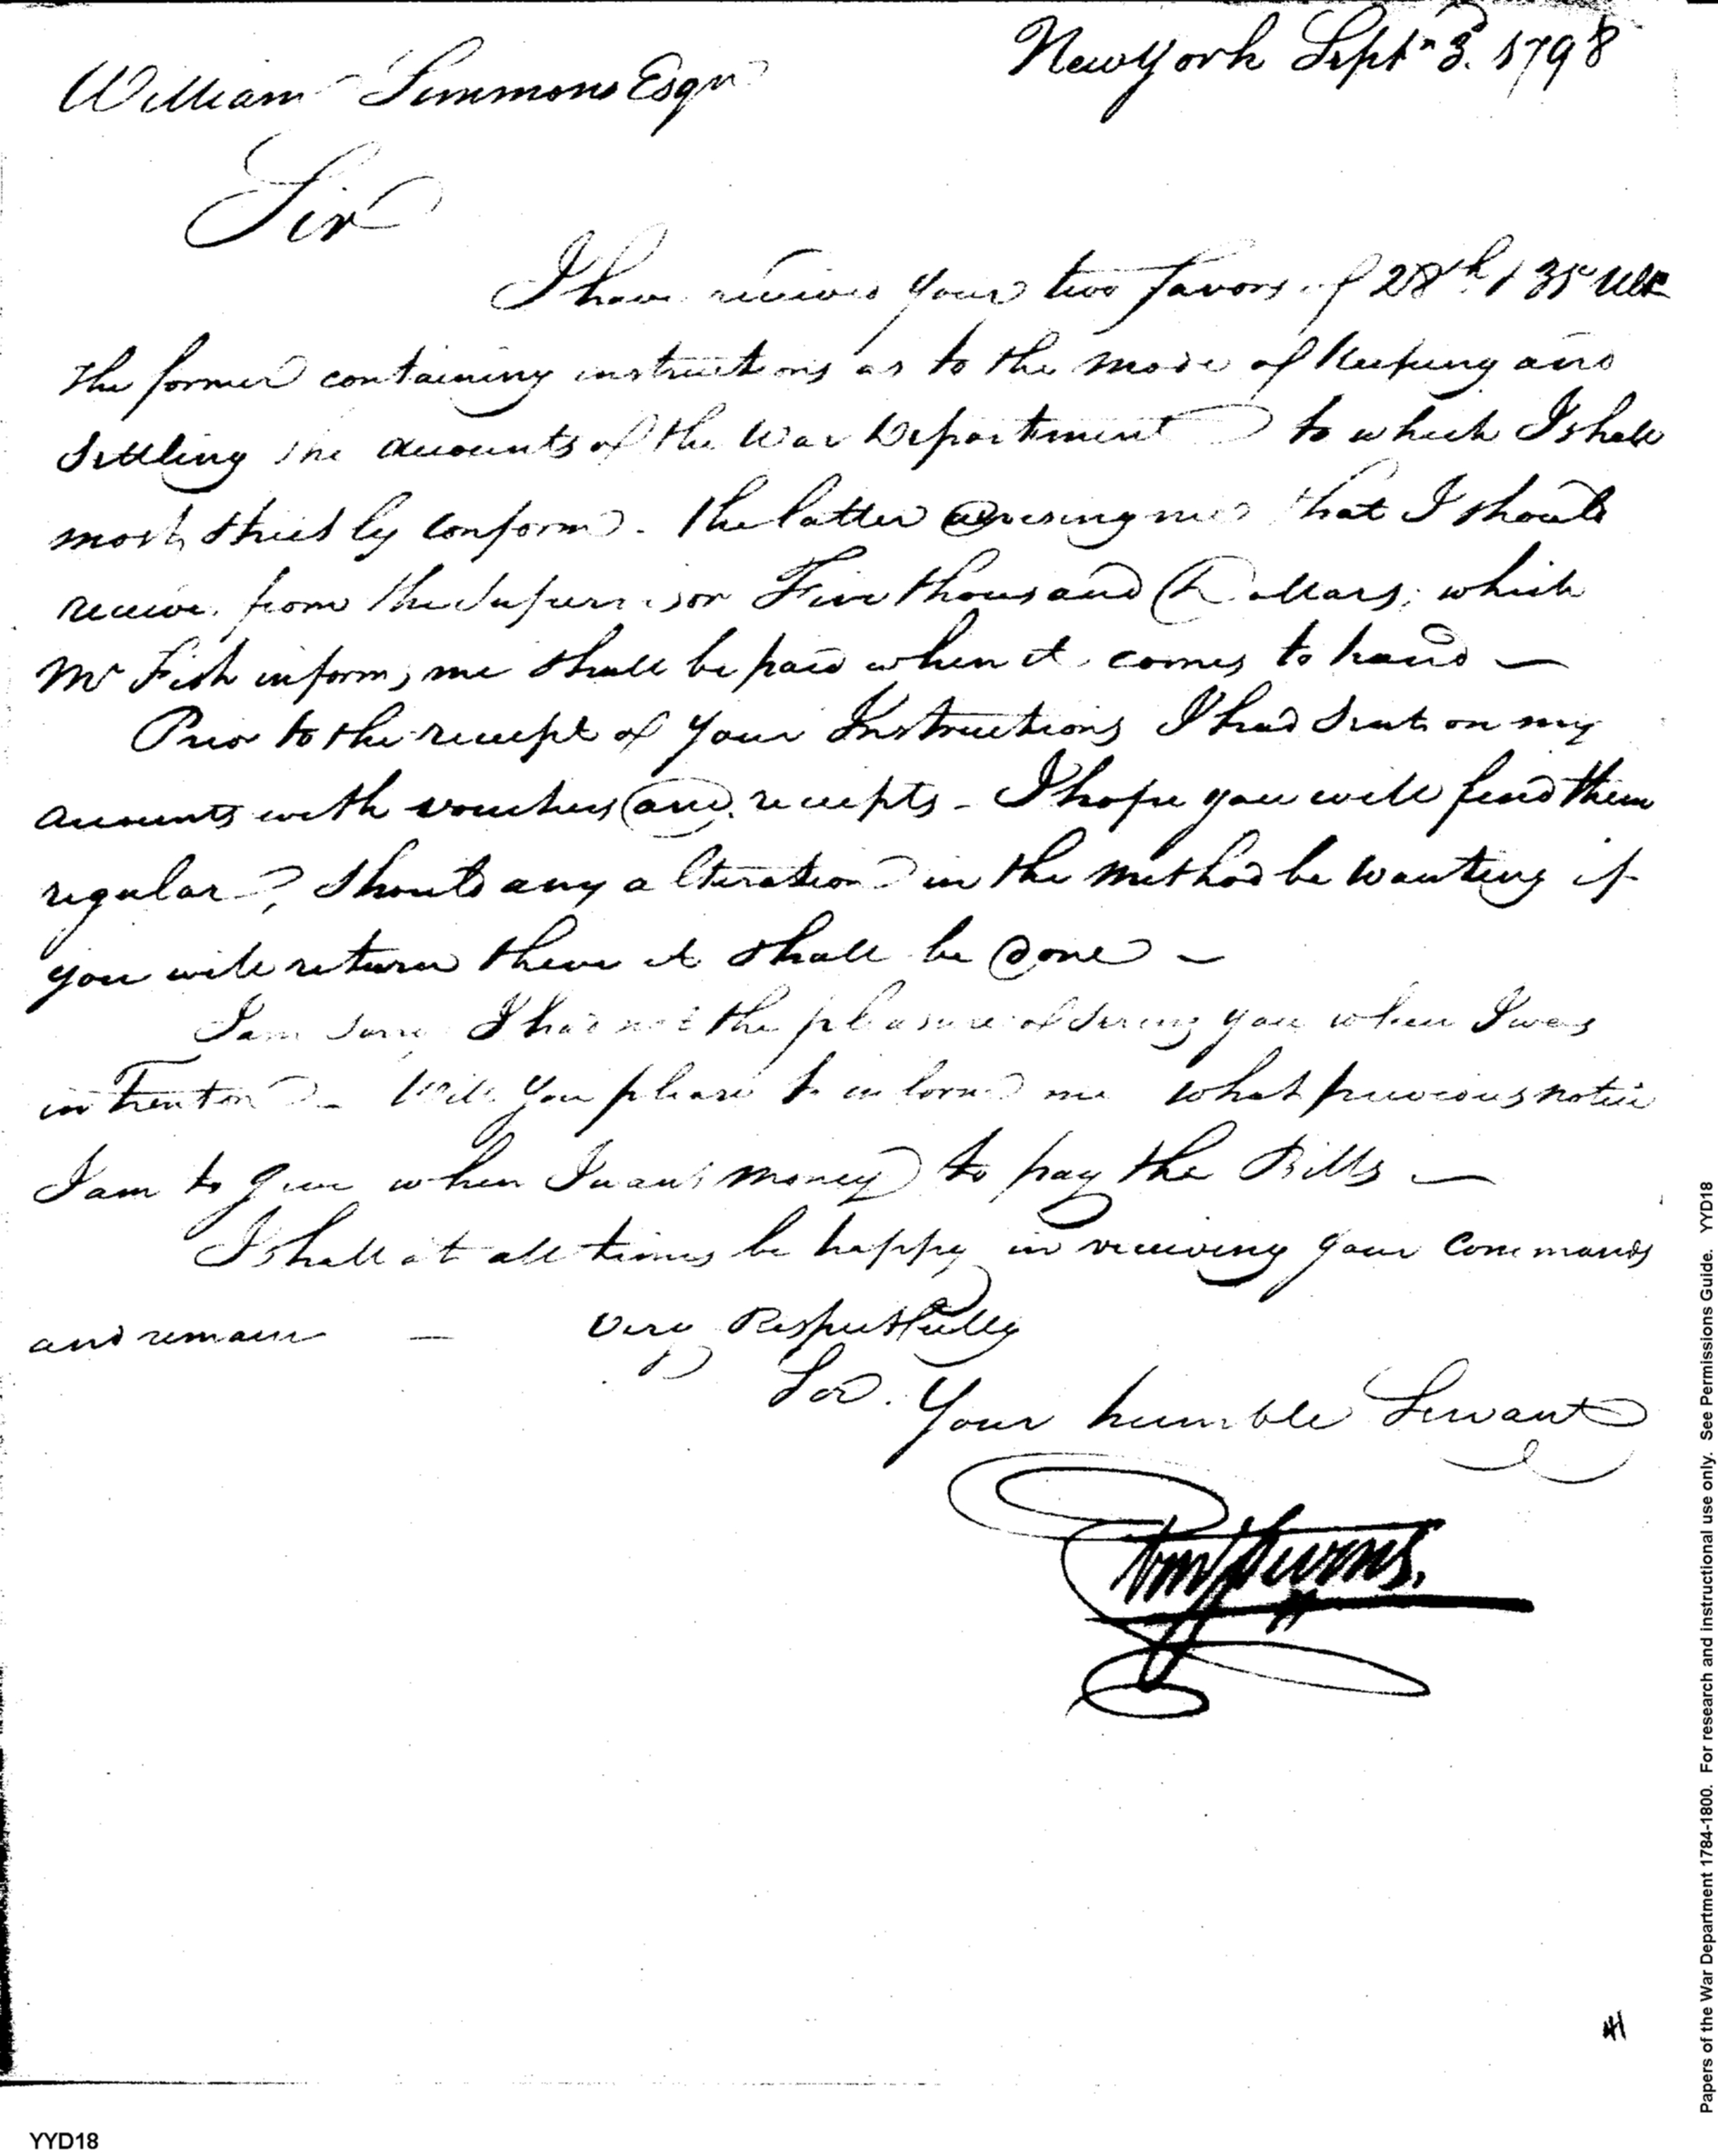 New York Sept.r 3.d 1798
William Simmons Esqr
Sir
I have received your two favors of 28th & 31st Ulto
the former containing instructions as to the mode of keeping and
settling the accounts of the War Department to which I shall
most strictly conform. The latter advising me that I should
receive from the Supervisor Five thousand Dollars; which
Mr Fish informs me shall be paid when it comes to hand —
Prior to the receipt of your Instructions I had sent on my
accounts with vouchers and receipts - I hope you will find them
regular, should any alteration in the method be wanting if
you will return them it shall be done —
I am sorry I had not the pleasure of seeing you when I was
in Trenton - Will you please to inform me what previous notice
I am to give when I want money to pay the Bills —
I shall at all times be happy in receiving your commands
and remain — very Respectfully
Your humble Servant
Stevens.
YYD18
Papers of the War Department 1784-1800. For research and instructional use only. See Permissions Guide. YYD18